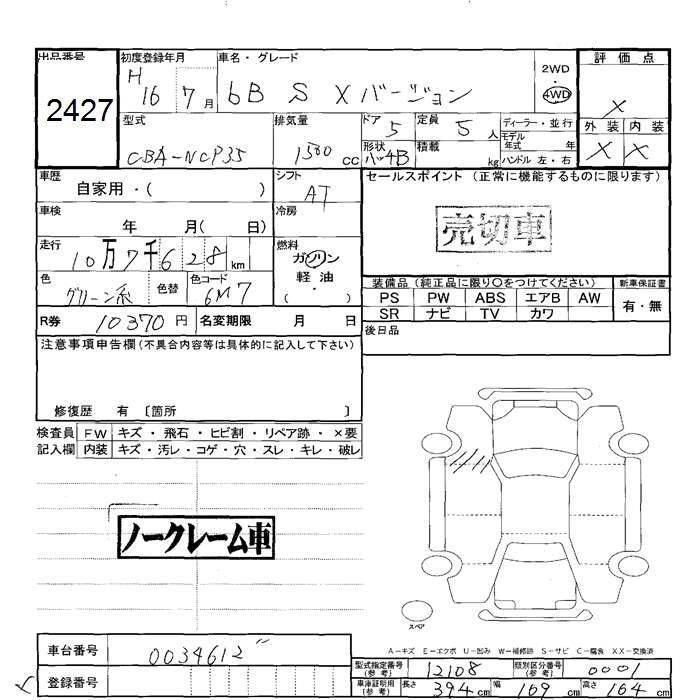 出品番号
2427
初度登録年月
H 16 7 月
車名・グレード
bB S Xバージョン
2WD
4WD
評価点
X
外装 内装
X X
型式
CBA-NCP35
排気量
1500 cc
ドア 5
定員 5 人
形状
積載 kg
ディーラー・並行
モデル年式 年
ハンドル 左・右
車歴
自家用・( )
シフト
AT
車検
年 月( 日)
冷房
走行
10万7千628 km
燃料
ガソリン
軽油
( ・ )
色
グリーン系
色替
色コード
6M7
R券 10370 円 名変期限 月 日
セールスポイント(正常に機能するものに限ります)
売切車
装備品(純正品に限り○をつけてください)
新車保証書
PS PW ABS エアB AW
SR ナビ TV カワ
有・無
後日品
注意事項申告欄(不具合内容等は具体的に記入して下さい)
修復歴 有 〔箇所 〕
検査員 FW キズ・飛石・ヒビ割・リペア跡・×要
記入欄 内装 キズ・汚レ・コゲ・穴・スレ・キレ・破レ
ノークレーム車
スペア
A－キズ E－エクボ U－凹み W－補修跡 S－サビ C－腐食 XX－交換済
車台番号 0034612
登録番号
型式指定番号(参考) 12108 類別区分番号(参考) 0001
車庫証明用(参考) 長さ 394 cm 幅 169 cm 高さ 164 cm